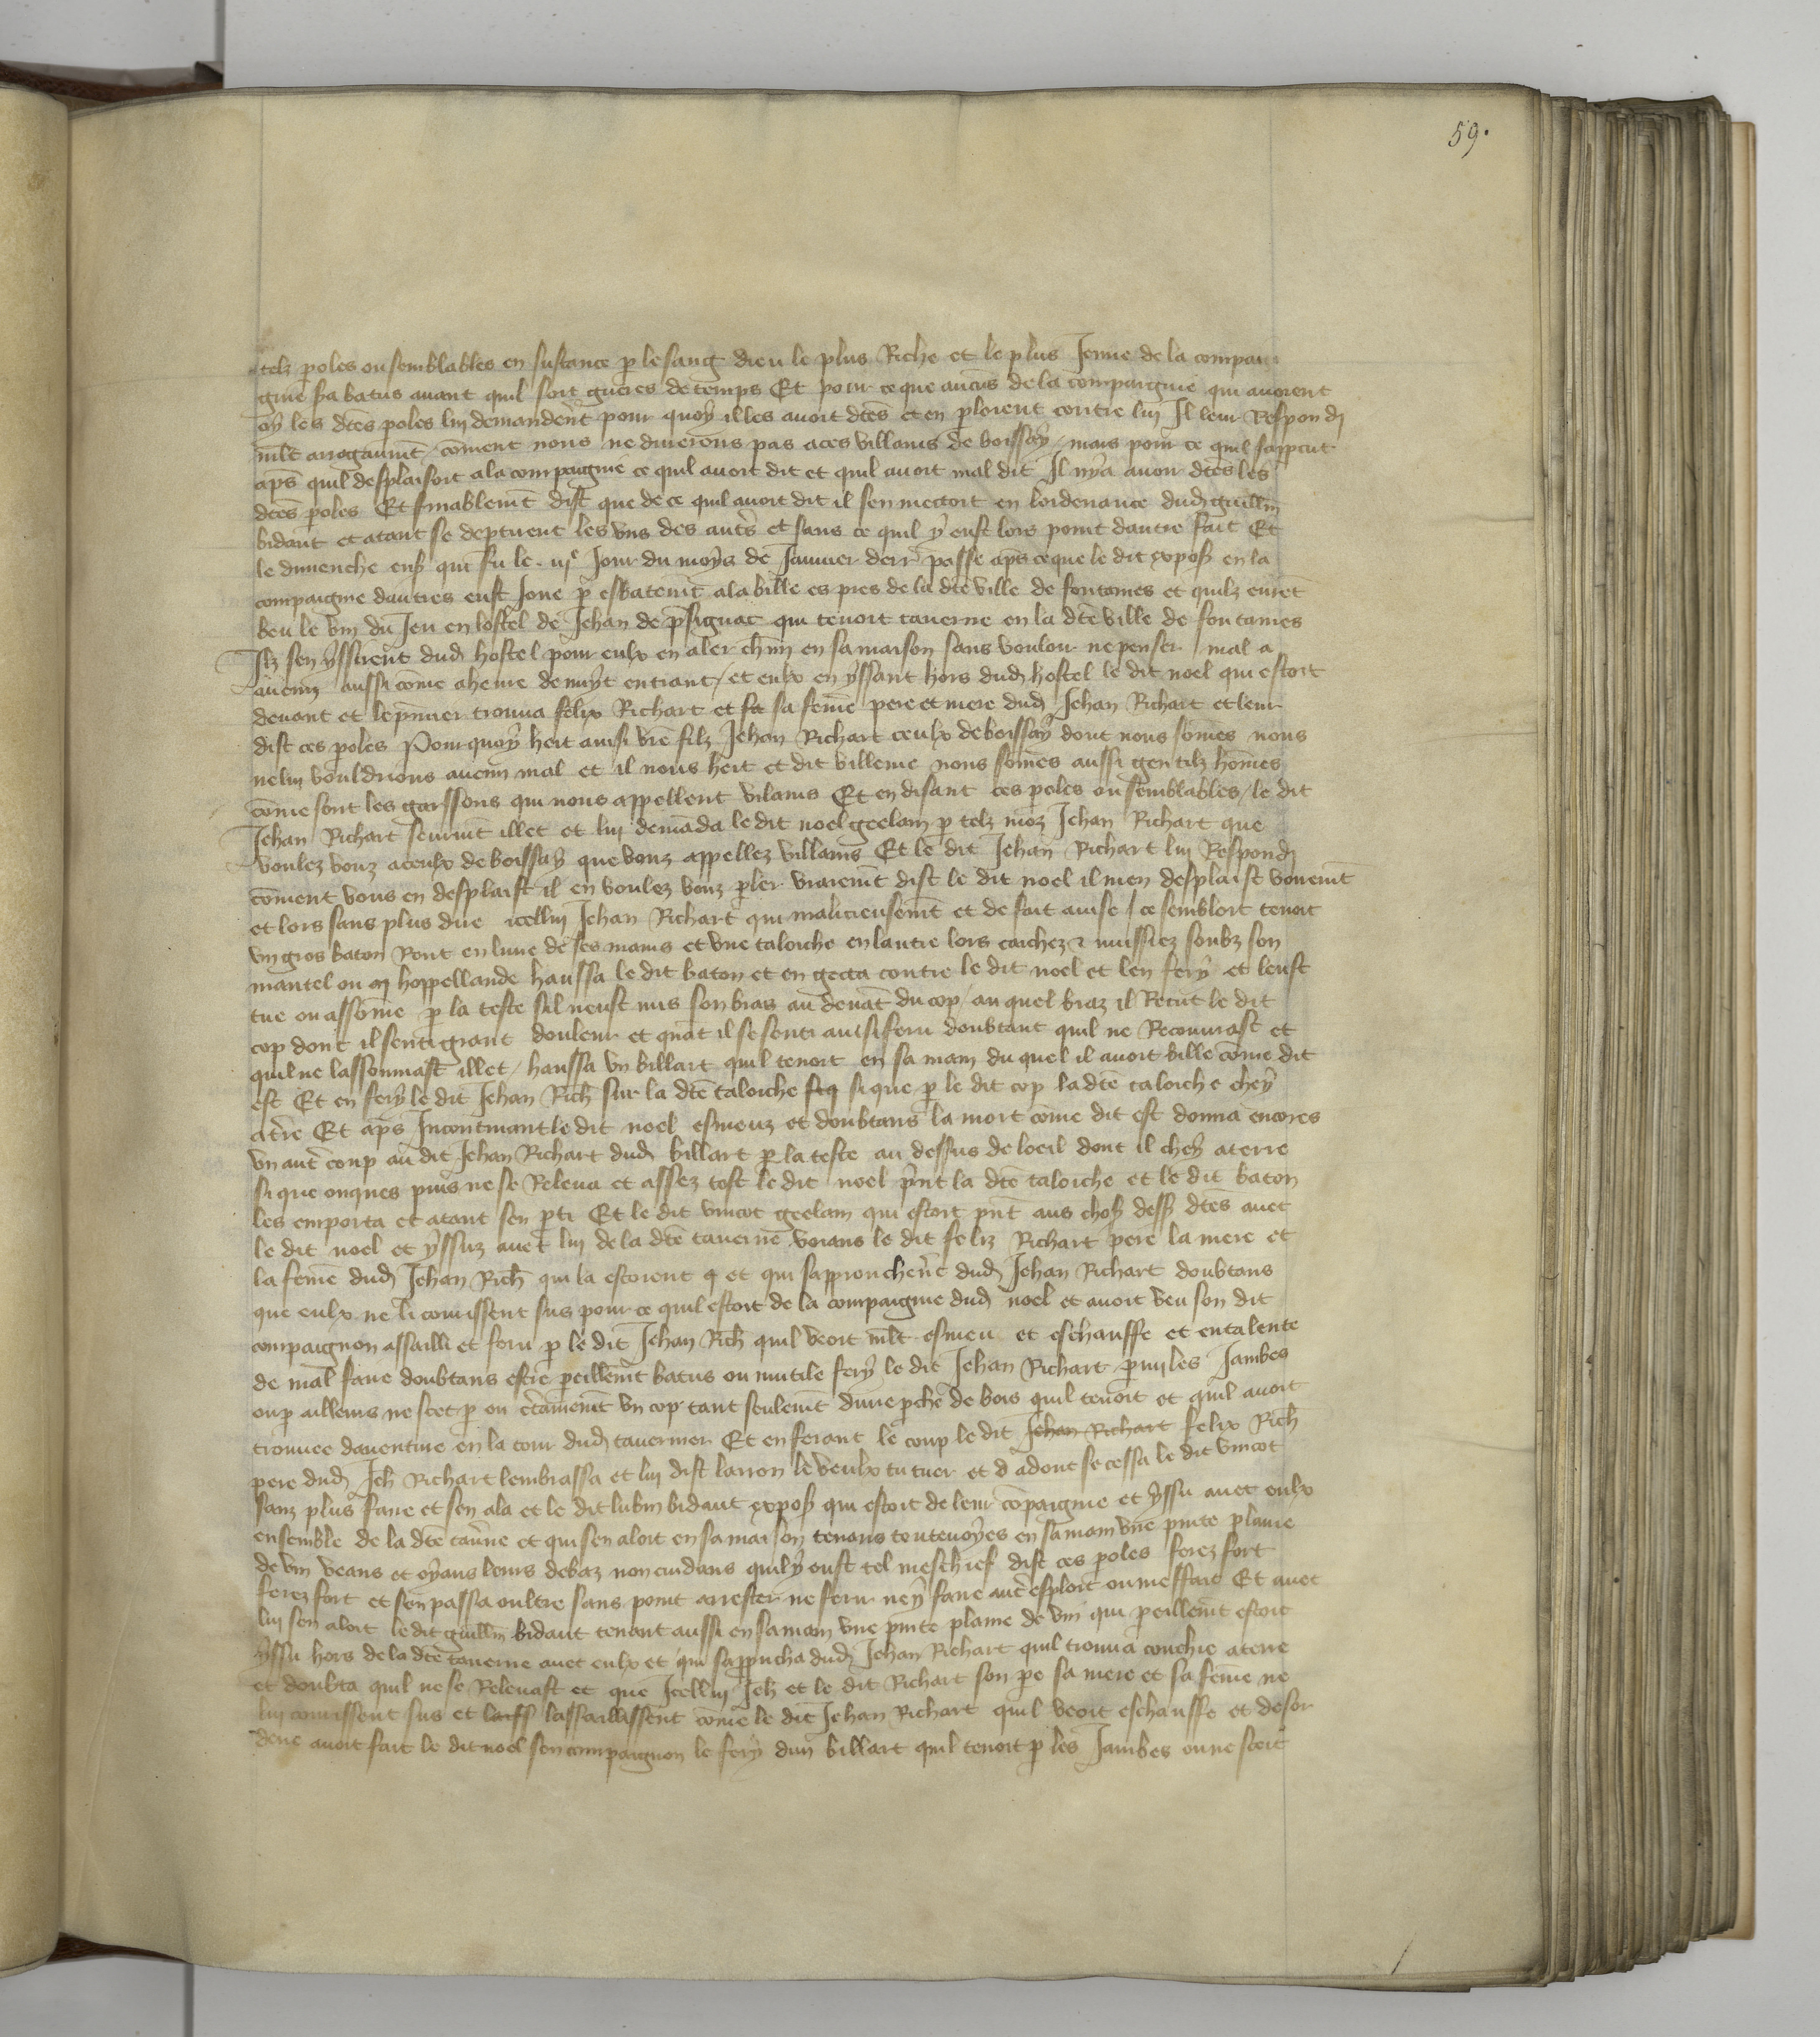 59.
telz poles ou semblables en sustance p le sang dieu le plus Riche et le plus Jenne de la compai
gnie sa batus auant quil soit gueres de temps Et pour ce que aucus de la compaignie qui auoient
oy les dtes poles lui demanderent pour quoy il les auoit dtes et en ploient contre lui Il leur Respondi
mlt arrogaument coment nous ne durerons pas a ces villains de boissay mais pour ce quil sappcut
aps quil desplaisoit a la compaignie ce quil auoit dit et quil auoit mal dit Il nya auoir dtes les
dtes poles Et finablemt dist que de ce quil auoit dit il sen mectoit en lordenance dud guillm
bidaut et atant se deptirent les vns des autrs et sans ce quil y eust lors point dautre fait Et
le dimenche ens qui fu le iije Jour du moys de Januier derr passe aps ce que le dit expos en la
compaignie dautres eust Joue p esbatemt a la bille es pres de la dte ville de fontaines et quilz eurent
beu le vin du Jeu en lostel de Jehan de psignac qui tenoit tauerne en la dte ville de fontaines
Ilz sen yssirent dud hostel pour eulx en aler chun en sa maison sans vouloir ne penser mal a
aucun aussi come a heure de nuyt entrant / et eulx en yssant hors dud hostel le dit noel qui estoit
deuant et le pmier trouua felix Richart et sa feme pere et mere dud Jehan Richart et leur
dist ces poles Pour quoy heit ainsi vre filz Jehan Richart ceulx de boissay dont nous somes nous
ne lui vouldrions aucun mal et il nous heit et dit villenie nous somes aussi gentilz homes
come sont les garssons qui nous appellent vilains Et en disant ces poles ou semblables / le dit
Jehan Richart seuruint illec et lui demada le dit noel geelain p telz moz Jehan Richart que
voulez vouz a ceulx de boissay que vouz appellez villains Et le dit Jehan Richart lui Respondi
coment vous en desplaist il en voulez vouz pler vraiemt dist le dit noel il men desplaist voiremt
et lors sans plus dire icellui Jehan Richart qui malicieusemt et de fait auise / ce sembloit tenoit
vn gros baton Ront en lune de ses mains et vne taloiche en lautre lors caichez & mussiez soubz son
mantel ou hoppellande haussa le dit baton et en gecta contre le dit noel et len fery et leust
tue ou assome p la teste sil neust mis son bras au deuat du cop / au quel braz il Recut le dit
cop dont il senti grant douleur et quat il se senti ainsi feru doubtant quil ne Recouurast et
quil ne lassommast illec / haussa vn billart quil tenoit en sa main du quel il auoit bille come dit
est Et en fery le dit Jehan Rich sur la dte taloiche si que p le dit cop la dte taloiche chey
a tre Et aps Incontinant le dit noel esmeuz et doubtans la mort come dit est donna encores
vn autr coup au dit Jehan Richart dud billart p la teste au dessus de loeil dont il chey a terre
si que onques puis ne se Releua et assez tost le dit noel print la dte taloiche et le dit baton
les emporta et atant sen pti Et le dit vincot geelain qui estoit pnt aus chos dess dtes auec
le dit noel et yssuz auec lui de la dte tauerne voians le dit felix Richart pere la mere et
la feme dud Jehan Rich qui la estoient et qui sapproucherent dud Jehan Richart doubtans
que eulx ne li courissent sus pour ce quil estoit de la compaignie dud noel et auoit veu son dit
compaignon assailli et feru p le dit Jehan Rich quil veoit mlt esmeu et eschauffe et entalente
de mal faire doubtans estre peillemt batus ou mutile fery le dit Jehan Richart pmi les Jambes
ou p ailleurs ne scet p ou ctainemt vn cop tant seulemt dune pche de bois quil tenoit et quil auoit
trouuee dauenture en la cour dud tauernier Et en ferant le coup le dit Jehan Richart felix Rich
pere dud Jeh Richart lembrassa et lui dist larron le veulx tu tuer et adont se cessa le dit vincot
sanz plus faire et sen ala et le dit lubin bidaut expos qui estoit de leur compaignie et yssu auec eulx
ensemble de la dte tauerne et qui sen aloit en sa maison tenans touteuoyes en sa main vne pinte plaine
de vin veans et oyans leurs debaz non cuidans quil y eust tel meschief dist ces poles ferez fort
ferez fort et sen passa oultre sans point arrester ne ferir ne y faire autr esploit ou meffait Et auec
lui sen aloit le dit guillm bidaut tenant aussi en sa main vne pinte plaine de vin qui peillemt estoit
yssu hors de la dte tauerne auec eulx et qui sapprucha dud Jehan Richart quil trouua couchie a terre
et doubta quil ne se Releuast et que Icellui Jeh et le dit Richart son pe sa mere et sa feme ne
lui courissent sus et lassaillissent come le dit Jehan Richart quil veoit eschauffe et desor
dene auoit fait le dit noel son compaignon le fery dun billart quil tenoit p les Jambes ou ne scet